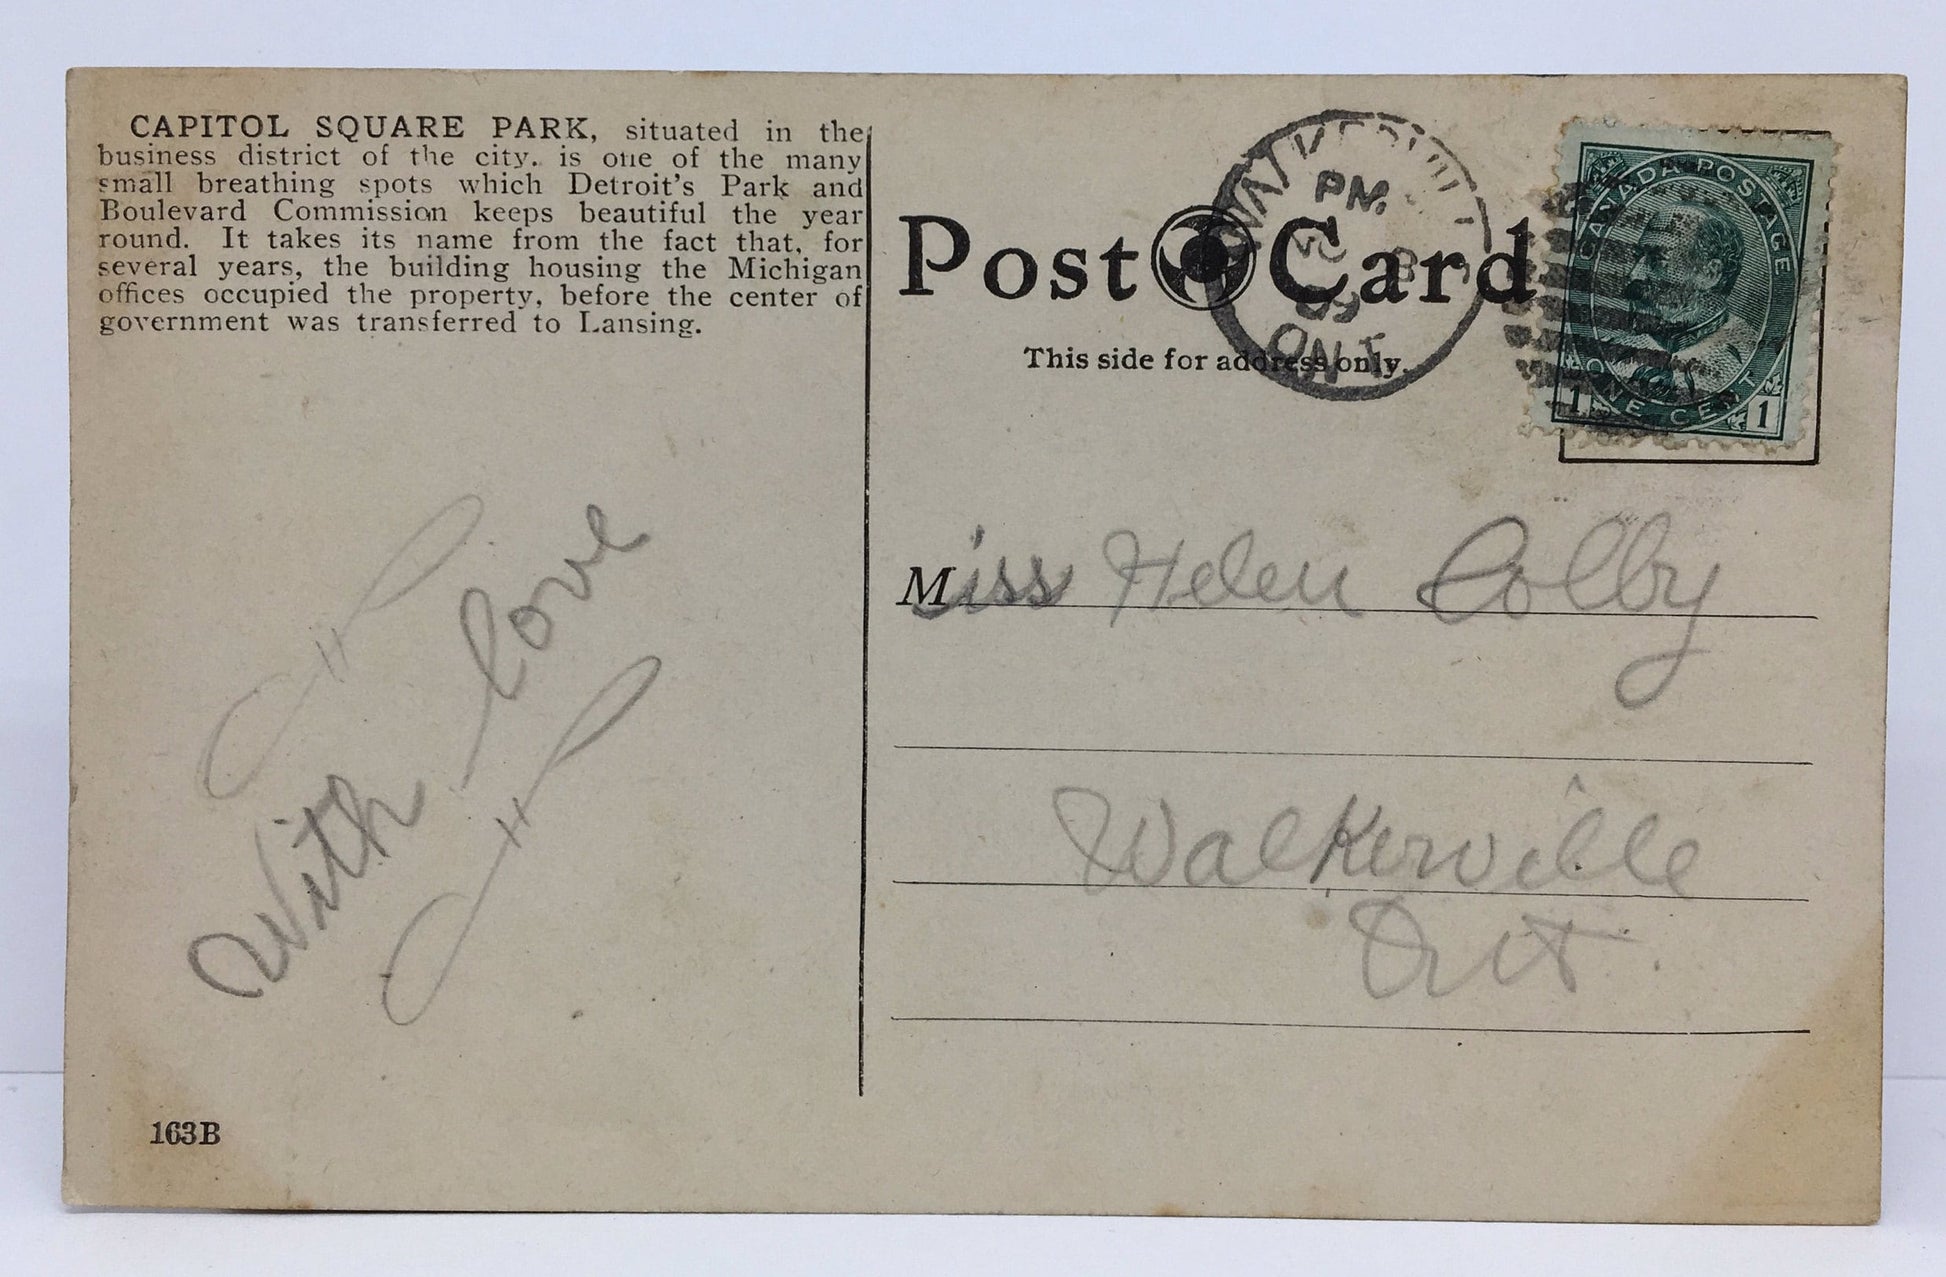 CAPITOL SQUARE PARK, situated in the
business district of the city. is one of the many
small breathing spots which Detroit's Park and
Boulevard Commission keeps beautiful the year
round. It takes its name from the fact that, for
several years, the building housing the Michigan
offices occupied the property, before the center of
government was transferred to Lansing.
With love
163B
Post Card
This side for address only.
WALKERVILLE
PM
09
ONT
CANADA POSTAGE
ONE CENT
1 1
Miss Helen Colby
Walkerville
Ont.